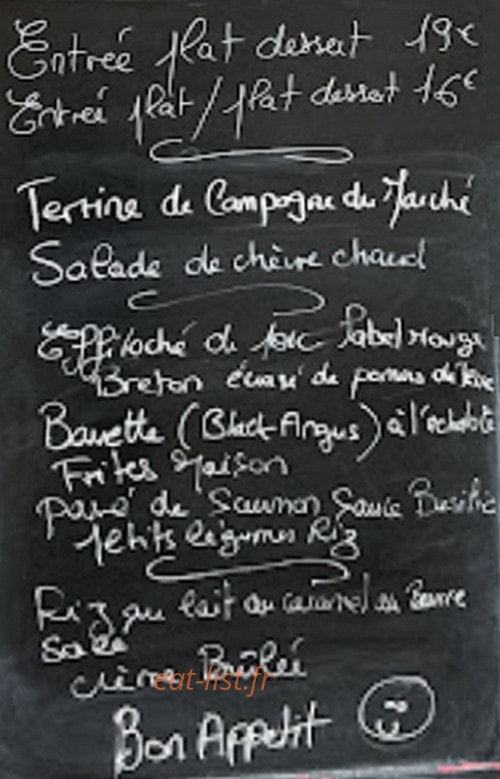 Entrée plat dessert 19€
Entrée plat / plat dessert 16€
Terrine de Campagne du Marché
Salade de chèvre chaud
Effiloché de porc label rouge
Breton écrasé de pommes de terre
Bavette (Black Angus) à l'échalote
Frites Maison
pavé de Saumon Sauce Basilic
petits légumes Riz
Riz au lait au caramel au Beurre
salé
crème Brûlée
eat-list.fr
Bon Appetit